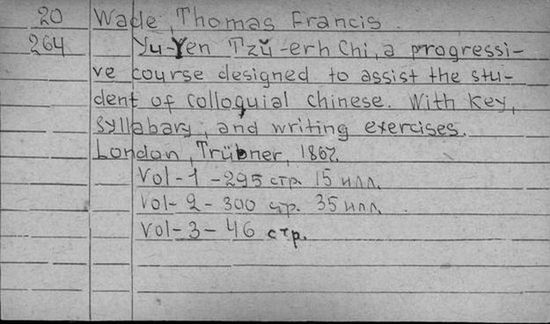 20 Wade, Thomas Francis.
264 Yu-Yen Tzŭ-erh Chi, a progressi-
ve course designed to assist the stu-
dent of colloquial chinese. With Key,
syllabary, and writing exercises.
London, Trübner, 1867.
Vol-1-295 стр. 15 илл.
Vol-2-300 стр. 35 илл.
Vol-3-46 стр.